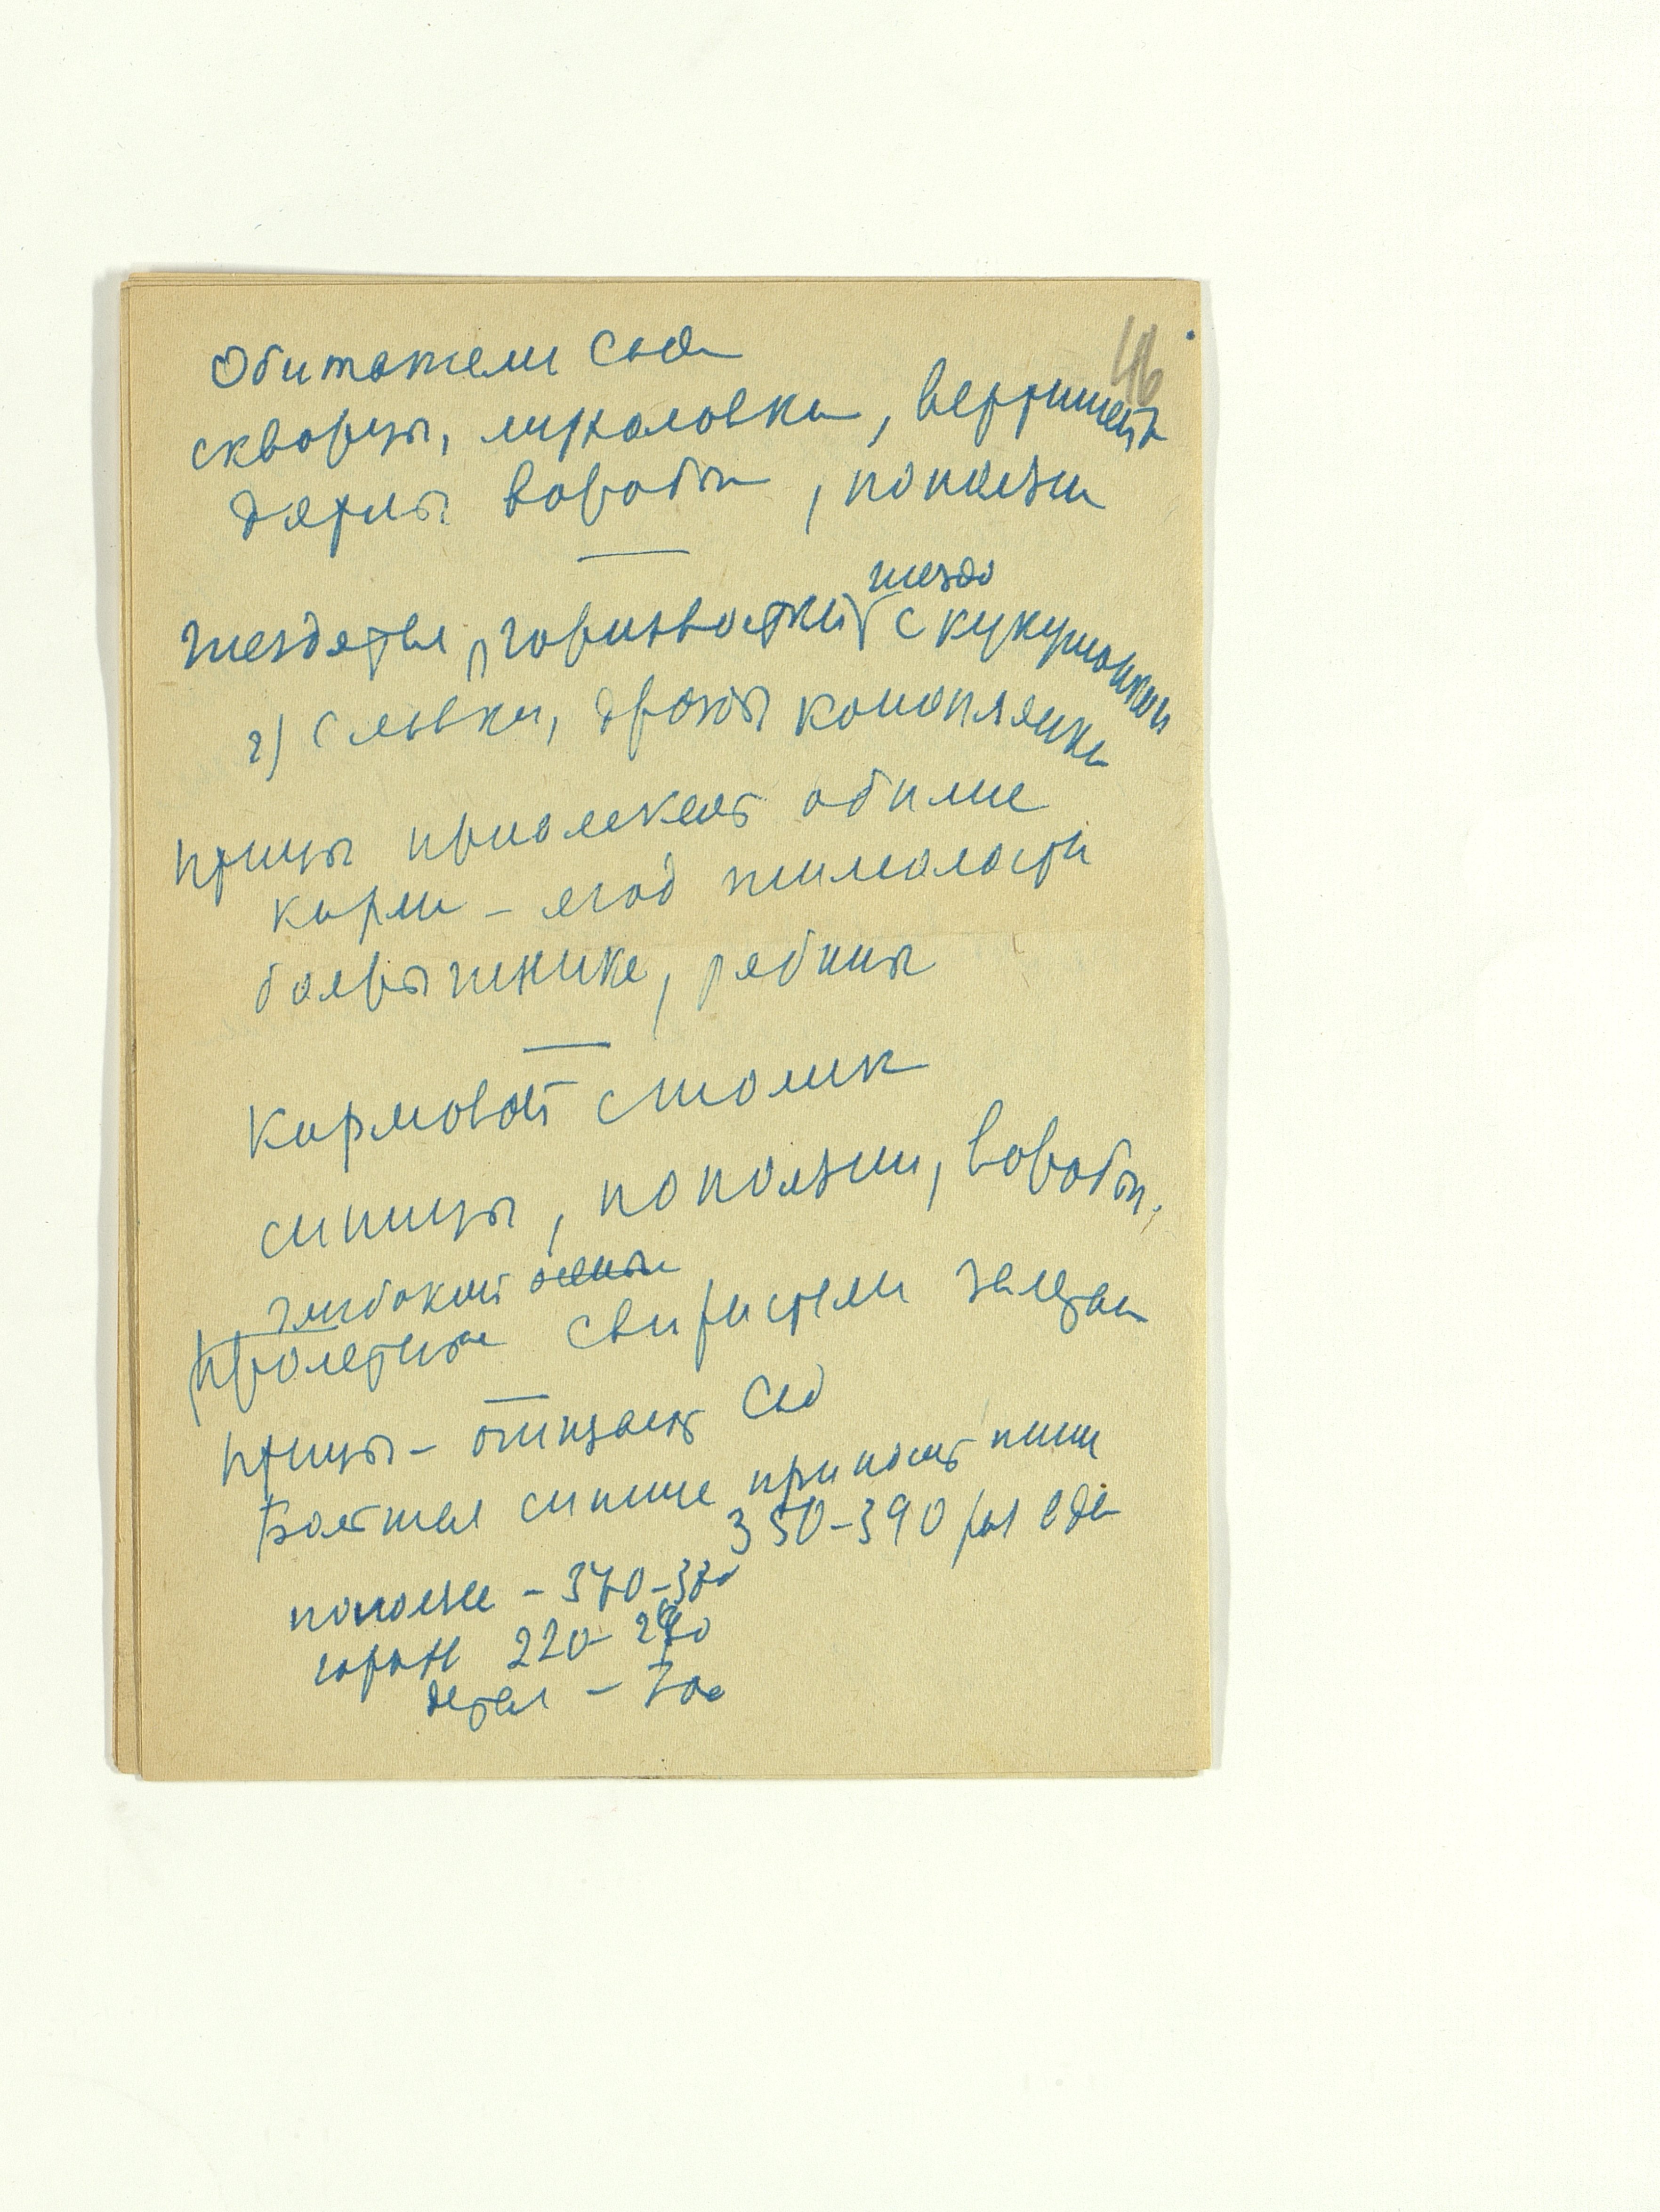 46
Обитатели сада
скворцы, мухоловка, вертишейка
дятлы воробьи, поползни
гнездо
Гнездятся горихвостки с кукушонком
2) Славки, дрозды коноплянки
птицы привлекает обилие
корма – ягод жимолости
боярышника, рябины
Кормовой столик
синицы, поползни, воробьи.
глубокой осенью
Пролетные свиристели
птицы – очищают сад
Большая синица приносит пищи
350–390 раз в день
поползень – 370–380
220–
дятел –